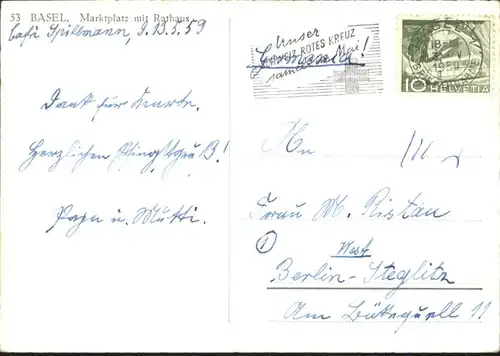 53 BASEL. Marktplatz mit Rathaus
Café Spillmann, d. 13.5.59
Unser
SCHWEIZ. ROTES KREUZ
sammelt im Mai!
Germania!
10 HELVETIA
Dank für Karte.
Herzlichen Pfingstgruß!
Papa u. Mutti.
An
Frau M. Ristau
①
West
Berlin-Steglitz
Am Bäkequell 11